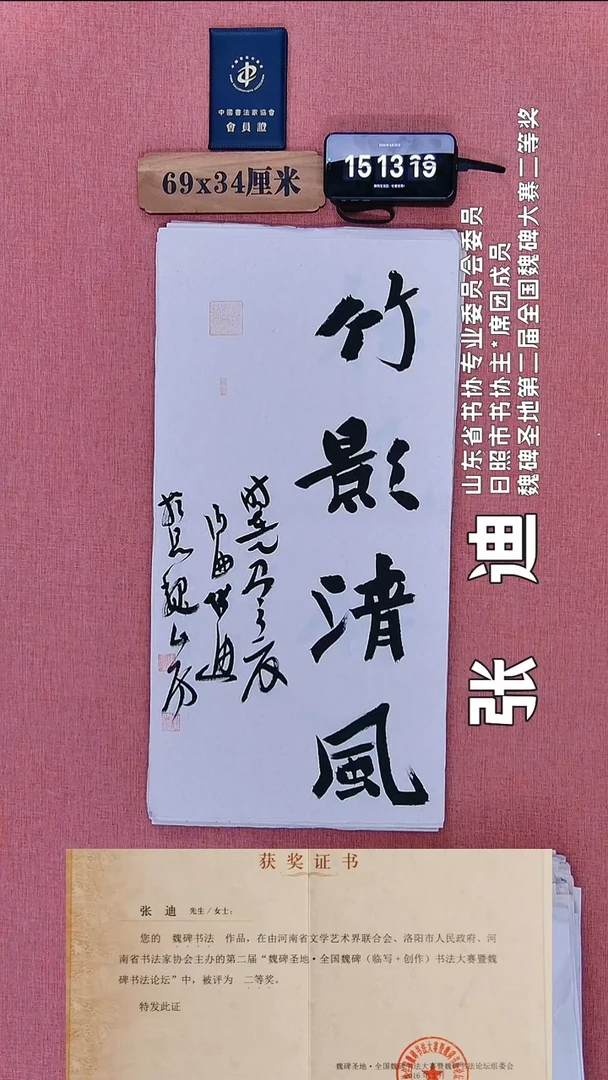 中國書法家協會
會員證
69x34厘米
15 13 19
竹影清風
山东省书协专业委员会委员
日照市书协主*席团成员
魏碑圣地第二届全国魏碑大赛二等奖
张迪
获奖证书
张 迪 先生/女士:
您的 魏碑书法 作品,在由河南省文学艺术界联合会、洛阳市人民政府、河
南省书法家协会主办的第二届“魏碑圣地·全国魏碑(临写+创作)书法大赛暨魏
碑书法论坛”中,被评为 二等奖。
特发此证
魏碑圣地·全国魏碑书法大赛暨魏碑书法论坛组委会